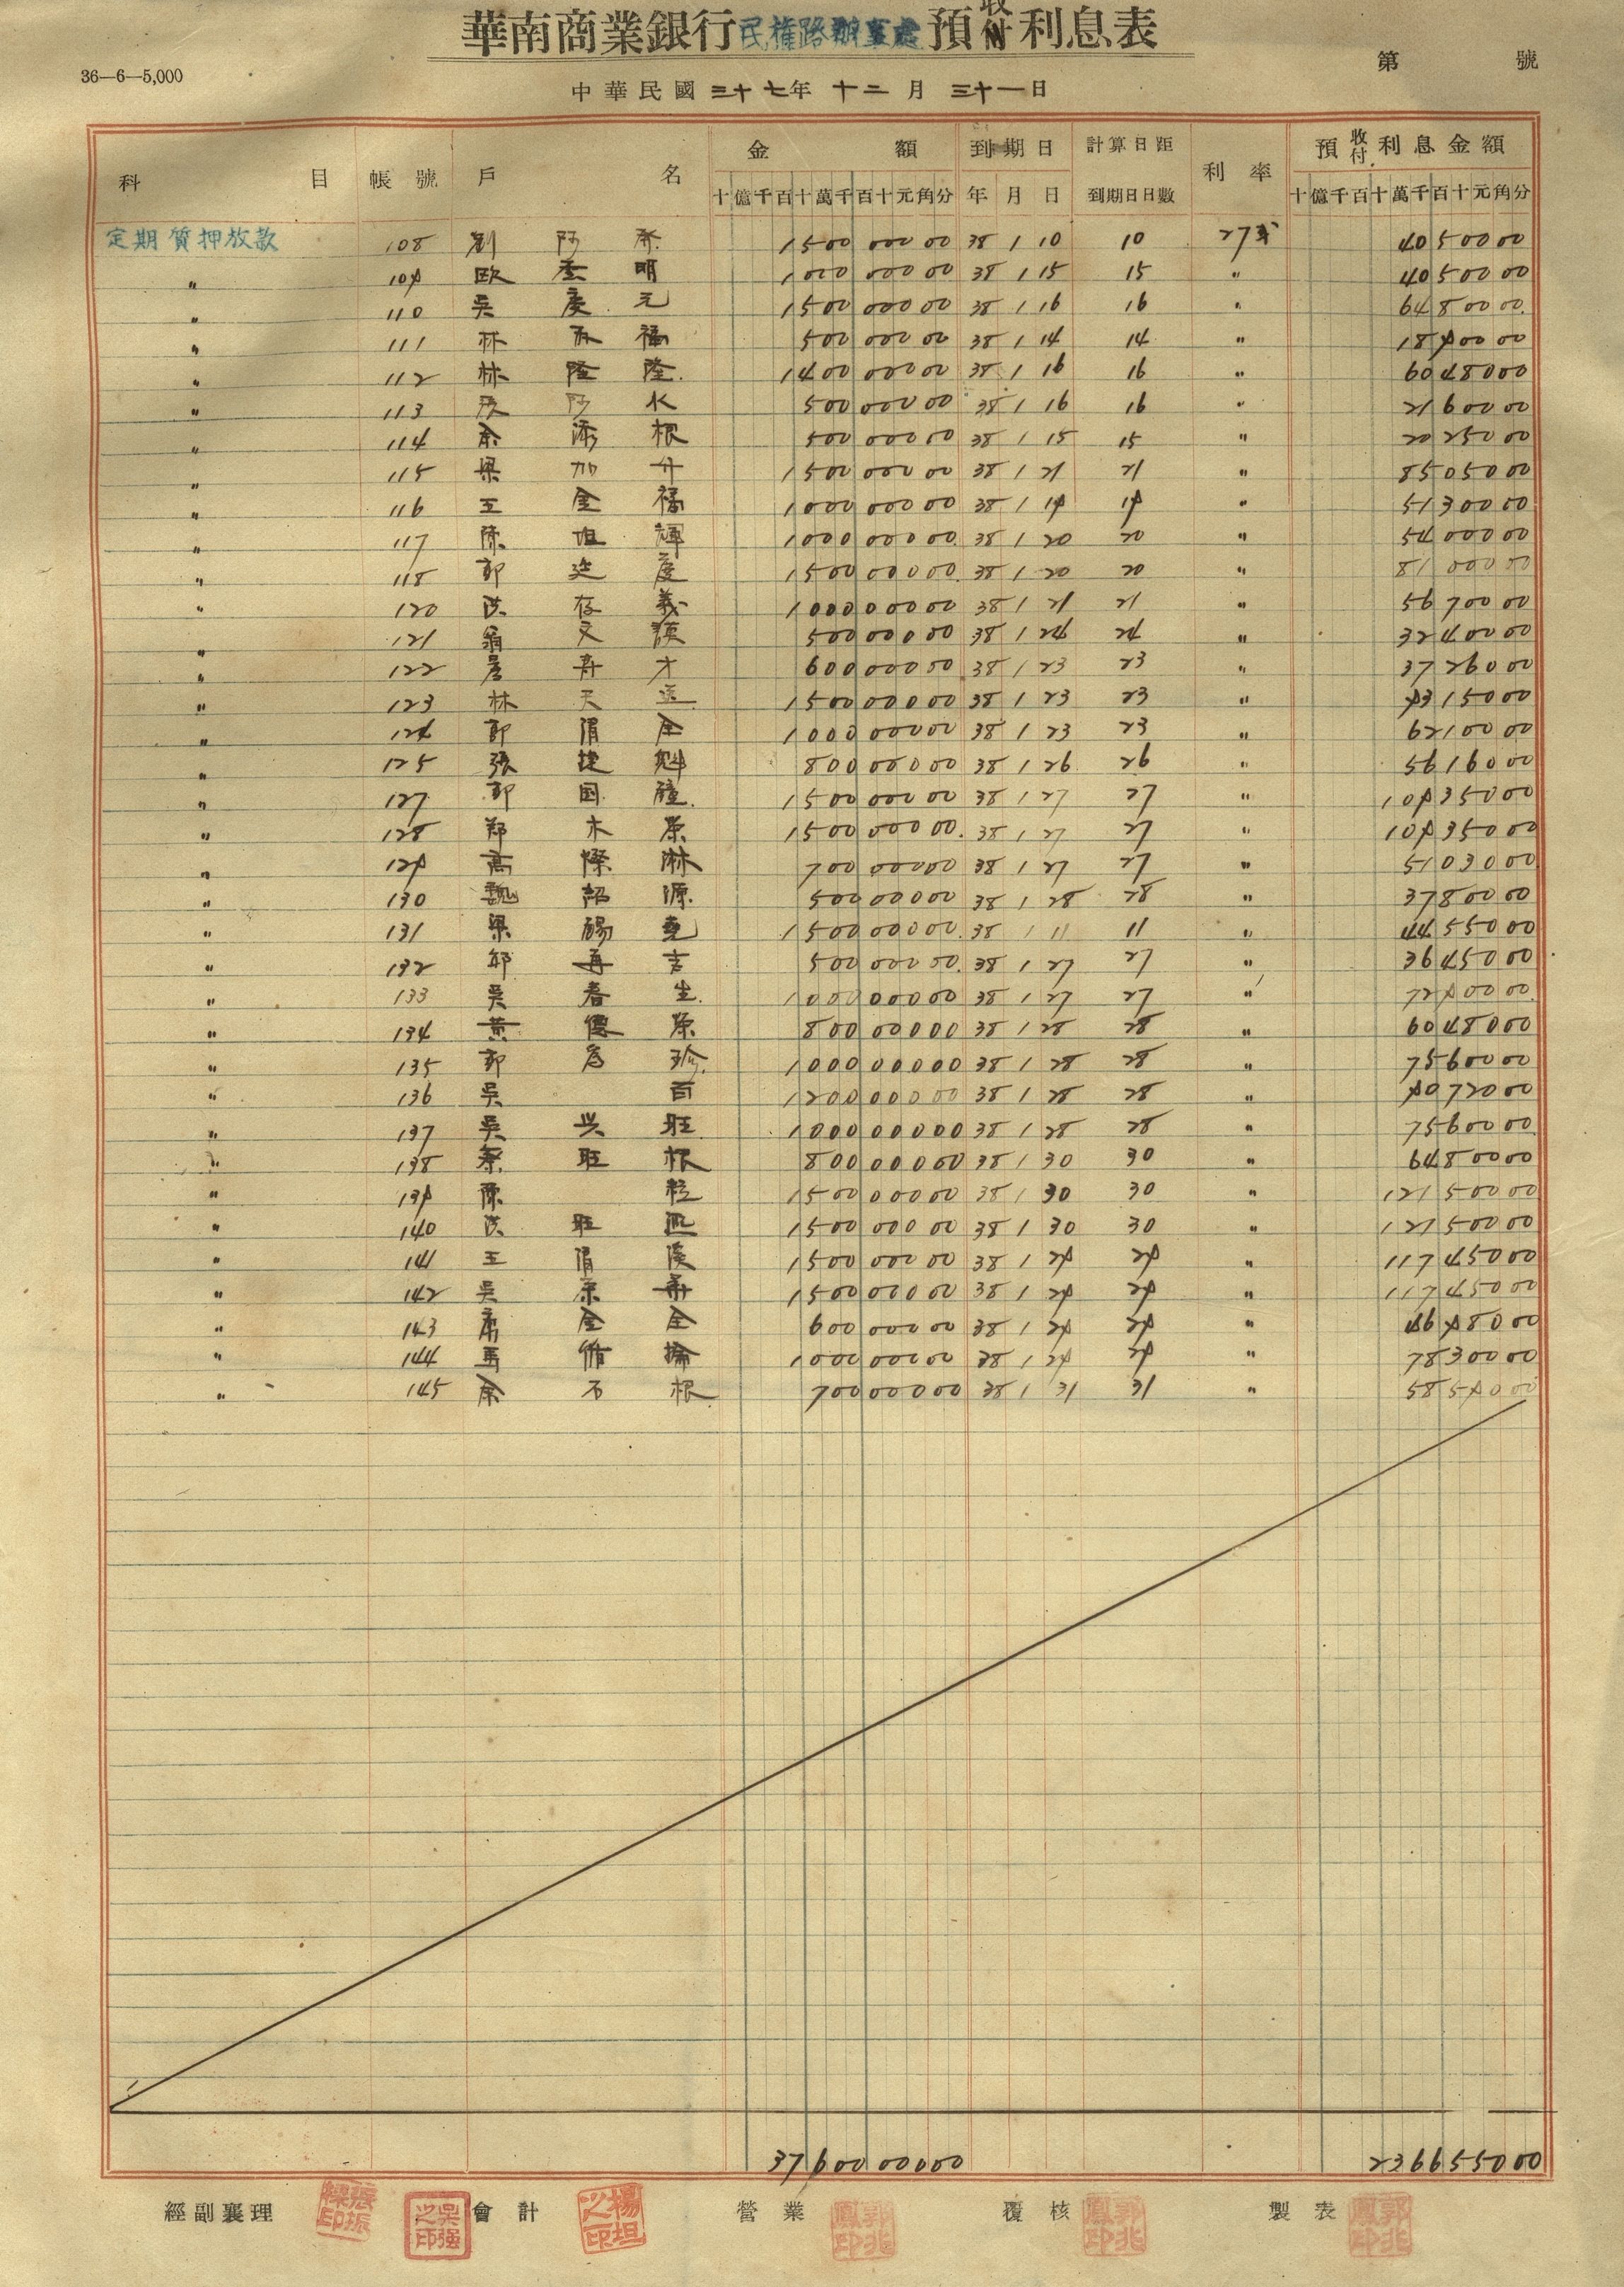 華南商業銀行民權路辦事處預收付利息表
36—6—5,000
第 號
中華民國三十七年十二月三十一日
科目 帳號 戶名 金額 到期日 計算日距到期日日數 利率 預收付利息金額
十億千百十萬千百十元角分 年月日 十億千百十萬千百十元角分
定期質押放款 108 劉阿 1500 000 00 38 1 10 10 27 40 500 00
〃 109 歐 明 1000 000 00 38 1 15 15 〃 40 500 00
〃 110 吳慶元 1500 000 00 38 1 16 16 〃 64 800 00
〃 111 林 福 500 000 00 38 1 14 14 〃 18 900 00
〃 112 林隆隆 1400 000 00 38 1 16 16 〃 60 480 00
〃 113 阿水 500 000 00 38 1 16 16 〃 21 600 00
〃 114 余添根 500 000 00 38 1 15 15 〃 20 250 00
〃 115 梁加升 1500 000 00 38 1 21 21 〃 85 050 00
〃 116 王金福 1000 000 00 38 1 19 19 〃 51 300 00
〃 117 陳坦輝 1000 000 00 38 1 20 20 〃 54 000 00
〃 118 郭廷慶 1500 000 00 38 1 20 20 〃 81 000 00
〃 120 洪存義 1000 000 00 38 1 21 21 〃 56 700 00
〃 121 翁文 500 000 00 38 1 24 24 〃 32 400 00
〃 122 才 600 000 00 38 1 23 23 〃 37 260 00
〃 123 林天送 1500 000 00 38 1 23 23 〃 93 150 00
〃 124 郭 全 1000 000 00 38 1 23 23 〃 62 100 00
〃 125 張捷魁 800 000 00 38 1 26 26 〃 56 160 00
〃 127 郭国 1500 000 00 38 1 27 27 〃 109 350 00
〃 128 鄭木 1500 000 00 38 1 27 27 〃 109 350 00
〃 129 高 淋 700 000 00 38 1 27 27 〃 51 030 00
〃 130 魏韶源 500 000 00 38 1 28 28 〃 37 800 00
〃 131 梁錫堯 1500 000 00 38 1 11 11 〃 44 550 00
〃 132 邱再吉 500 000 00 38 1 27 27 〃 36 450 00
〃 133 吳春生 1000 000 00 38 1 27 27 〃 72 900 00
〃 134 黃 800 000 00 38 1 28 28 〃 60 480 00
〃 135 郭 珍 1000 000 00 38 1 28 28 〃 75 600 00
〃 136 吳百 1200 000 00 38 1 28 28 〃 90 720 00
〃 137 吳兴旺 1000 000 00 38 1 28 28 〃 75 600 00
〃 138 蔡旺根 800 000 00 38 1 30 30 〃 64 800 00
〃 139 陳粒 1500 000 00 38 1 30 30 〃 121 500 00
〃 140 洪旺 1500 000 00 38 1 30 30 〃 121 500 00
〃 141 王 1500 000 00 38 1 29 29 〃 117 450 00
〃 142 吳 1500 000 00 38 1 29 29 〃 117 450 00
〃 143 金全 600 000 00 38 1 29 29 〃 46 980 00
〃 144 1000 000 00 38 1 29 29 〃 78 300 00
〃 145 余石根 700 000 00 38 1 31 31 〃 58 590 00
37600 000 00 2366 550 00
經副襄理 會計 營業 覆核 製表
張振
吳強之印
楊坦之印
郭兆鳳印
郭兆鳳印
郭兆鳳印